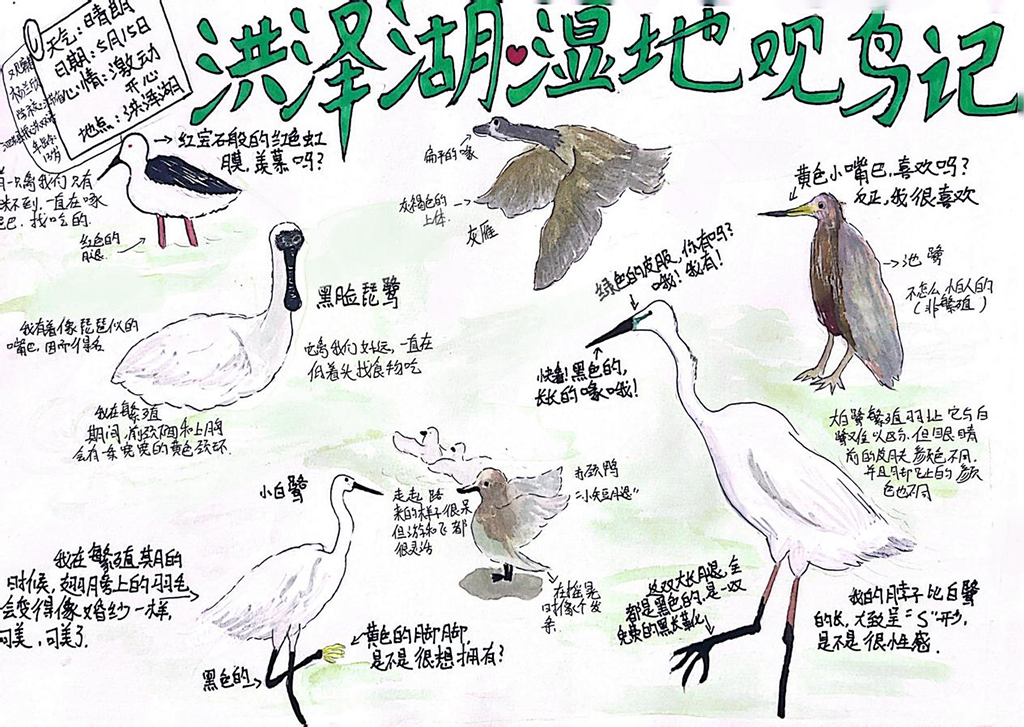 洪泽湖♥湿地观鸟记
天气:晴朗
日期:5月15日
心情:激动
开心
地点:洪泽湖
13岁
→红宝石般的红色虹
膜,羡慕吗?
一直在啄
找吃的.
红色的
腿
扁平的喙
灰褐色的
上体
灰雁
黄色小嘴巴,喜欢吗?
反正,我很喜欢
→池鹭
不怎么怕人的
(非繁殖)
黑脸琵鹭
我有着像琵琶似的
嘴巴,因而得名
它离我们好远,一直在
低着头找食物吃
我在繁殖
期间,前颈下面和上胸
会有一条宽宽的黄色颈环.
绿色的皮肤,你有吗?
哦!我有!
快看!黑色的,
长长的喙哦!
白鹭繁殖羽让它与白
鹭难以区分,但眼睛
前的皮肤颜色不同,
并且脚上的颜
色也不同
小白鹭
走起路
来的样子很呆
但游和飞都
很灵活
赤颈鸭
"小短腿"
在摇晃
我在繁殖期的
时候,翅膀上的羽毛
会变得像婚纱一样,
可美,可美了.
黄色的脚脚,
是不是很想拥有?
黑色的
这双大长腿,全
都是黑色的,是一双
免费的黑长靴
我的脖子比白鹭
的长,大致呈"S"形,
是不是很性感.